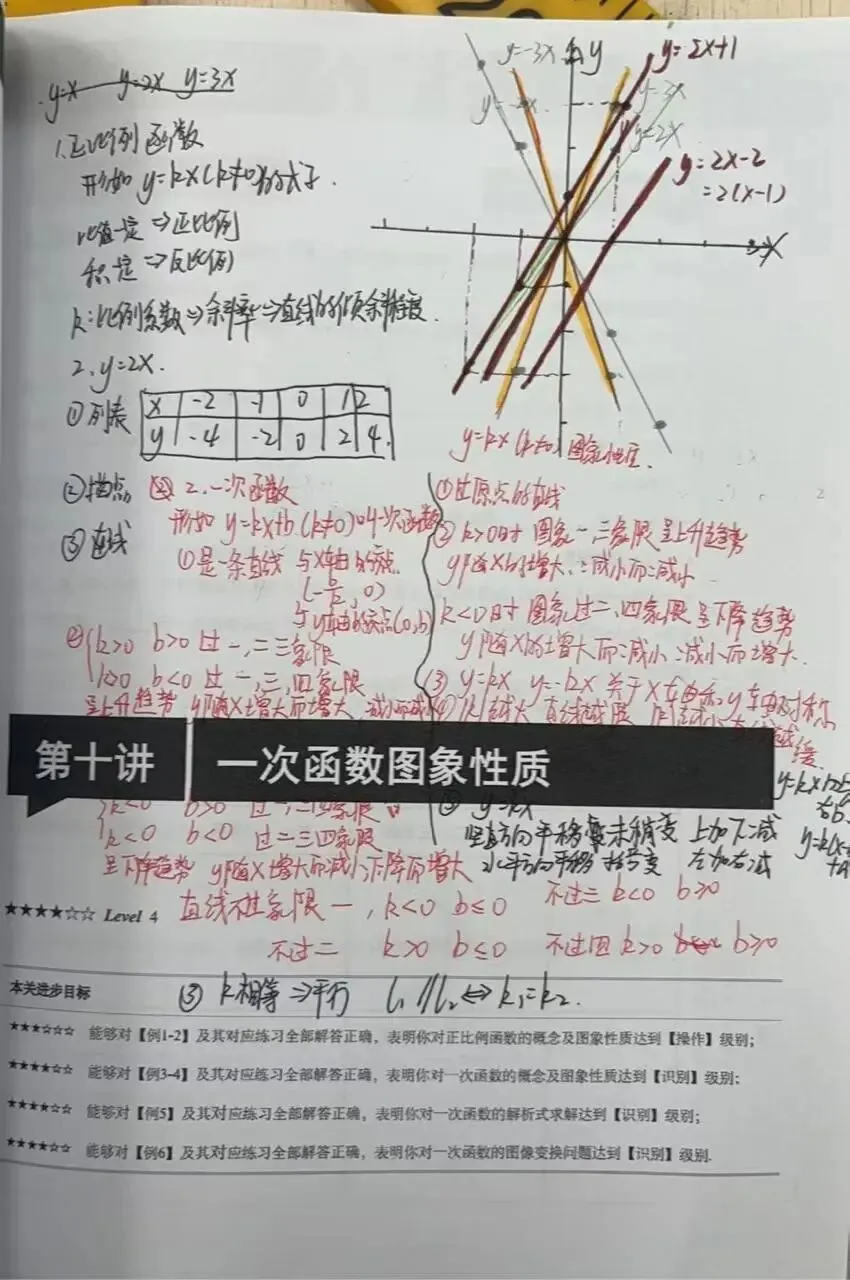 y=x y=2x y=3x
1.正比例函数
形如 y=kx(k≠0)的式子.
比值一定⇒正比例
积一定⇒反比例
k:比例系数⇒斜率⇒直线的倾斜程度.
2. y=2x.
①列表
x -2 -1 0 1 2
y -4 -2 0 2 4
②描点
③连线
y=-3x
y
y=2x+1
y=3x
y=2x
y=2x-2
=2(x-1)
x
2.一次函数
形如 y=kx+b(k≠0)的一次函数
①是一条直线 与x轴的交点
(-b/k, 0)
与y轴的交点(0,b)
②k>0 b>0 过一,二三象限
k>0 b<0 过一,三,四象限
呈上升趋势 y随x增大而增大,减小而减小
y=kx(k≠0)图象性质.
①过原点的直线
②k>0时 图象一三象限 呈上升趋势
y随x的增大,减小而减小
k<0时 图象过二、四象限 呈下降趋势
y随x的增大而减小,减小而增大.
③ y=kx y=-kx 关于x轴和y轴对称
缓
第十讲 一次函数图象性质
k<0 b>0 过一,二四象限
k<0 b<0 过二三四象限
呈下降趋势 y随x增大而减小下降而增大
y=kx
竖直方向平移 末稍变 上加下减
水平方向平移 左加右减
★★★★☆☆ Level 4
直线不过象限一, k<0 b≤0 不过三 k<0 b≥0
不过二 k>0 b≤0 不过四 k>0 b≥0
本关进步目标
③ k相等⇒平行 l₁//l₂⇔k₁=k₂.
★★★☆☆☆ 能够对【例1-2】及其对应练习全部解答正确，表明你对正比例函数的概念及图象性质达到【操作】级别；
★★★★☆☆ 能够对【例3-4】及其对应练习全部解答正确，表明你对一次函数的概念及图象性质达到【识别】级别；
★★★★☆☆ 能够对【例5】及其对应练习全部解答正确，表明你对一次函数的解析式求解达到【识别】级别；
★★★★☆☆ 能够对【例6】及其对应练习全部解答正确，表明你对一次函数的图像变换问题达到【识别】级别.